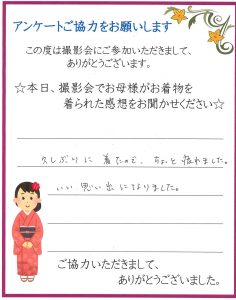 アンケートご協力をお願いします
この度は撮影会にご参加いただきまして、
ありがとうございます。
☆本日、撮影会でお母様がお着物を
着られた感想をお聞かせください☆
久しぶりに 着たので、ちょっと疲れました。
いい思い出になりました。
ご協力いただきまして、
ありがとうございました。